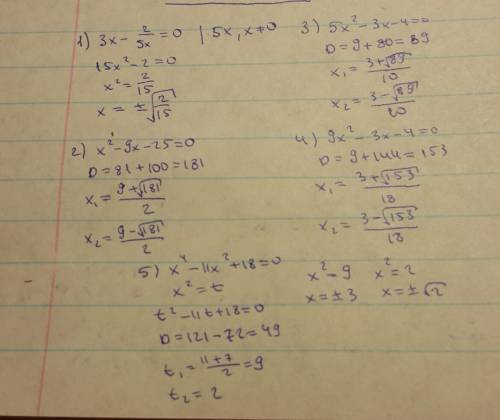 1) 3x - 2/5x = 0 | 5x, x≠0
15x² - 2 = 0
x² = 2/15
x = ±√2/15
2) x² - 9x - 25 = 0
D = 81 + 100 = 181
x₁ = 9+√181/2
x₂ = 9-√181/2
3) 5x² - 3x - 4 = 0
D = 9 + 80 = 89
x₁ = 3+√89/10
x₂ = 3-√89/10
4) 9x² - 3x - 4 = 0
D = 9 + 144 = 153
x₁ = 3+√153/18
x₂ = 3-√153/18
5) x⁴ - 11x² + 18 = 0
x² = t
t² - 11t + 18 = 0
D = 121 - 72 = 49
t₁ = 11+7/2 = 9
t₂ = 2
x² - 9 x² = 2
x = ±3 x = ±√2